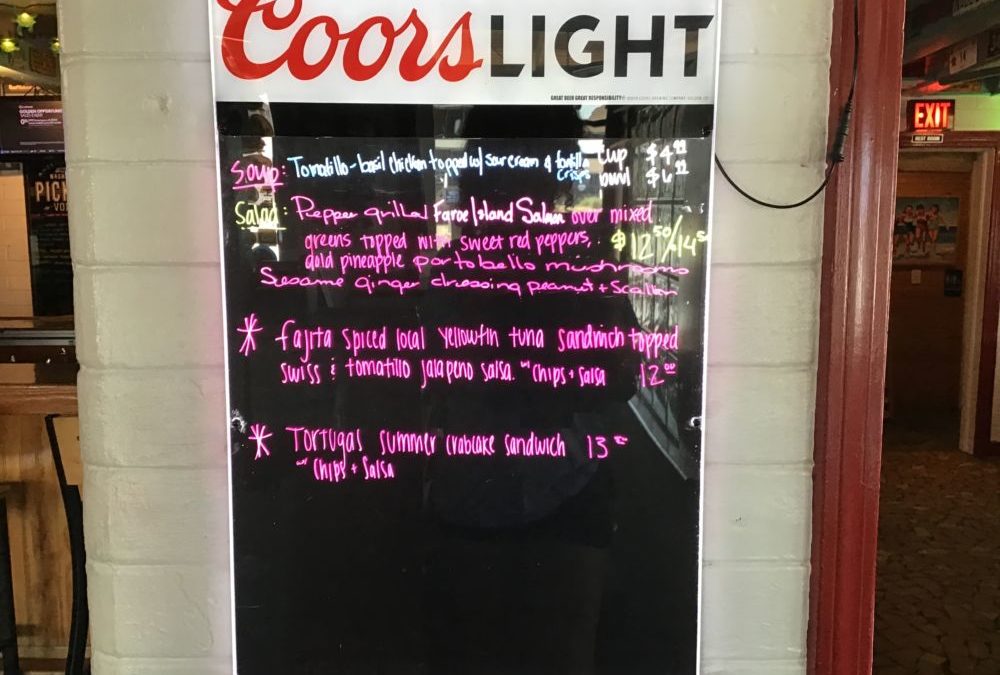 Coors LIGHT
GREAT BEER GREAT RESPONSIBILITY
Soup: Tomatillo-basil chicken topped w/ sour cream & tortilla crisps
cup $4.99
bowl $6.99
Salad: Pepper grilled Faroe Island Salmon over mixed
greens topped with sweet red peppers, $12.50/14.50
gold pineapple portobello mushrooms
Sesame ginger dressing peanut + Scallion
* fajita spiced local yellowfin tuna sandwich topped
swiss & tomatillo jalapeno salsa. w/ chips + salsa 12.00
* Tortugas summer crabcake sandwich 13
w/ Chips + Salsa
EXIT
PICK